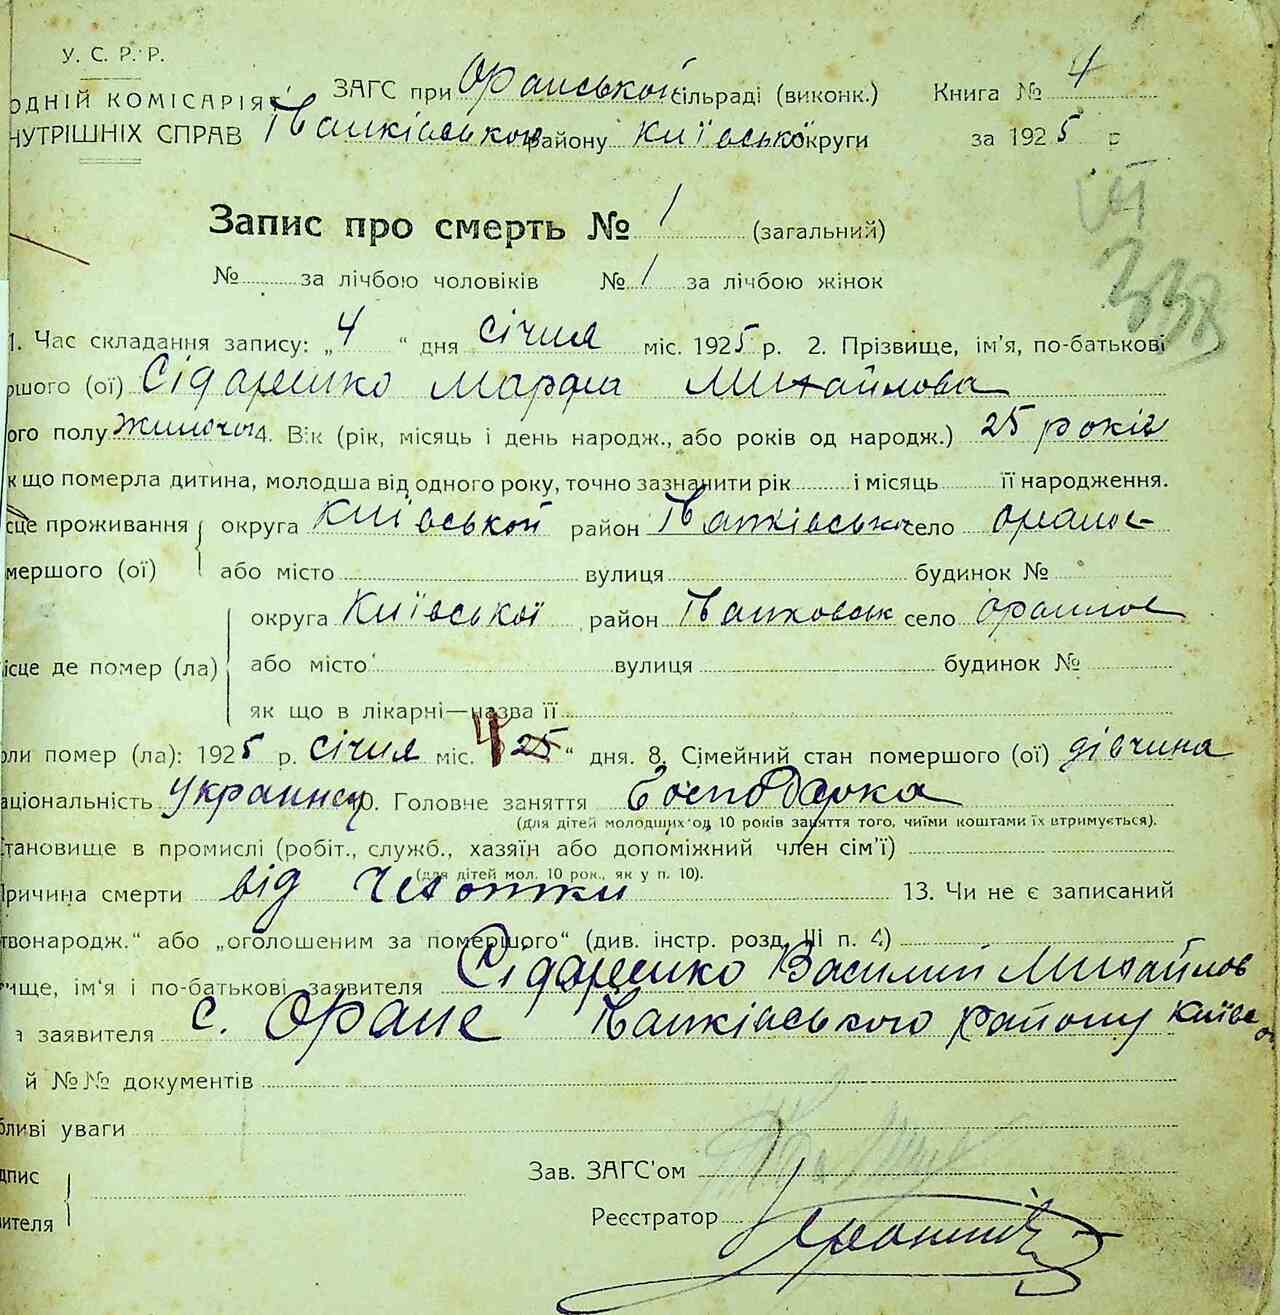 У. С. Р. Р.
ОДНІЙ КОМІСАРІЯТ ЗАГС при Оранській сільраді (виконк.) Книга № 4
НУТРІШНІХ СПРАВ Іванківського району Київської округи за 1925 р
Запис про смерть № 1 (загальний)
№ за лічбою чоловіків № 1 за лічбою жінок
1. Час складання запису: „4“ дня січня міс. 1925 р. 2. Прізвище, ім'я, по-батькові
ршого (ої) Сідаренко Марфа Михайлова
ого полу жиночого 4. Вік (рік, місяць і день народж., або років од народж.) 25 років
к що померла дитина, молодша від одного року, точно зазначити рік і місяць її народження.
сце проживання округа Київської район Іванківськ село Ораное
мершого (ої) або місто вулиця будинок №
округа Київської район Іванковськ село Оранное
ісце де помер (ла) або місто вулиця будинок №
як що в лікарні—назва її
оли помер (ла): 1925 р. січня міс. 4 25 “ дня. 8. Сімейний стан помершого (ої) дівчина
аціональність 10. Головне заняття Господарка
(для дітей молодших од 10 років заняття того, чиїми коштами їх втримується).
тановище в промислі (робіт., служб., хазяїн або допоміжний член сім'ї)
(для дітей мол. 10 рок., як у п. 10).
Причина смерти від Чехотки 13. Чи не є записаний
твонародж.“ або „оголошеним за помершого“ (див. інстр. розд. III п. 4)
вище, ім'я і по-батькові заявителя Сідаренко Василий Михайлов
а заявителя с. Оране Іанківського району Київс
й №№ документів
бливі уваги
дпис Зав. ЗАГС'ом
вителя Реєстратор